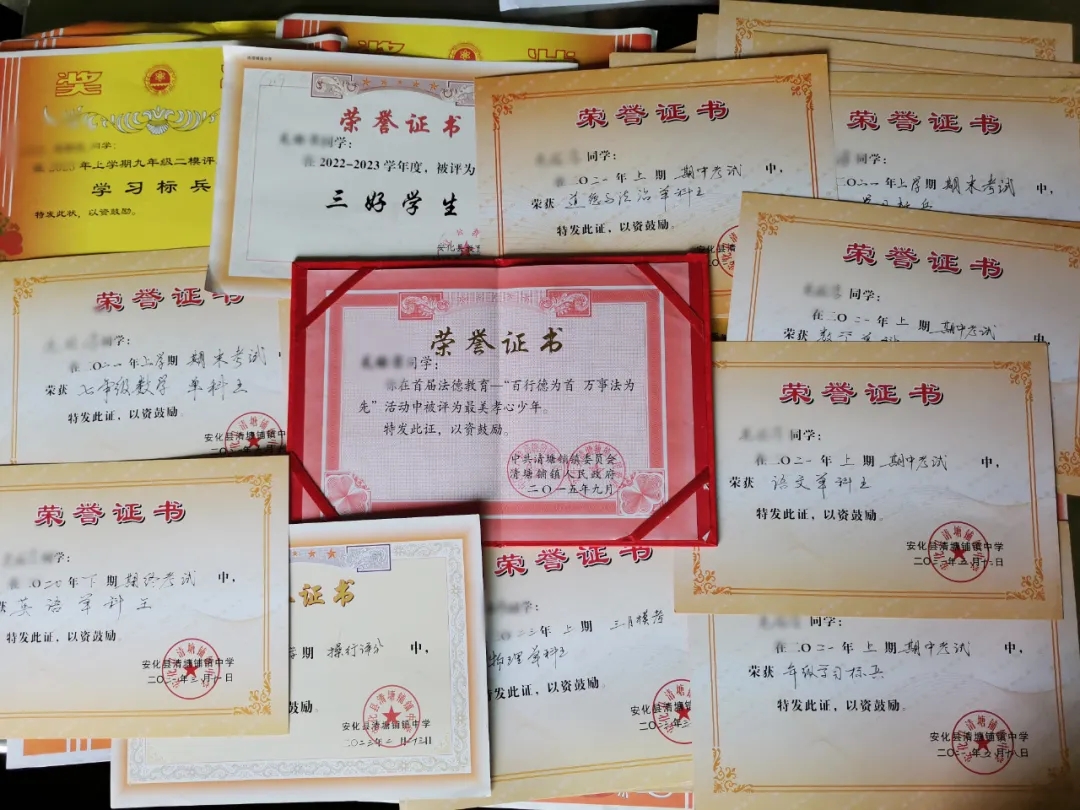 奖
同学:
2023年上学期九年级二模评
学习标兵
特发此状,以资鼓励。
荣誉证书
同学:
在2022-2023学年度,被评为
三好学生
荣誉证书
同学:
在二〇二一年上期期中考试中,
荣获道德与法治单科王
特发此证,以资鼓励。
荣誉证书
同学:
二〇二一年上学期期末考试中,
学习标兵
荣誉证书
同学:
在二〇二一年上学期期末考试
荣获七年级数学单科王
特发此证,以资鼓励
安化县清塘铺镇中
荣誉证书
同学:
你在首届法德教育—“百行德为首 万事法为
先”活动中被评为最美孝心少年。
特发此证,以资鼓励。
中共清塘铺镇委员会
清塘铺镇人民政府
二〇一五年九月
荣誉证书
同学:
在二〇二一年上期期中考试
荣获数学单科
荣誉证书
同学:
在二〇二一年上期期中考试中,
荣获语文单科王
特发此证,以资鼓励。
安化县清塘铺镇中学
荣誉证书
学:
在二〇二〇年下期期终考试中,
获英语单科王
特发此证,以资鼓励。
安化县清塘铺镇中学
证书
期操行评分中,
鼓励。
安化县清塘铺镇中学
荣誉证书
学:
二〇二三年上期三月模考
物理单科王
特发此证,以资鼓励。
安化县清塘铺镇
同学:
在二〇二一年上期期中考试中,
荣获年级学习标兵
特发此证,以资鼓励。
安化县清塘铺镇中学